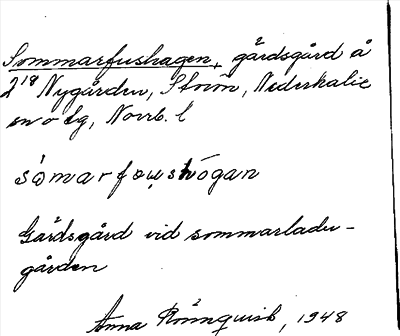 Sommarfushagen, gårdsgård å
2¹⁸ Nygården, Storön, Nederkalix
sn o lg, Norrb. l
sòmarfowshógan
Gårdsgård vid sommarladu-
gården
Anna Rönnquist, 1948